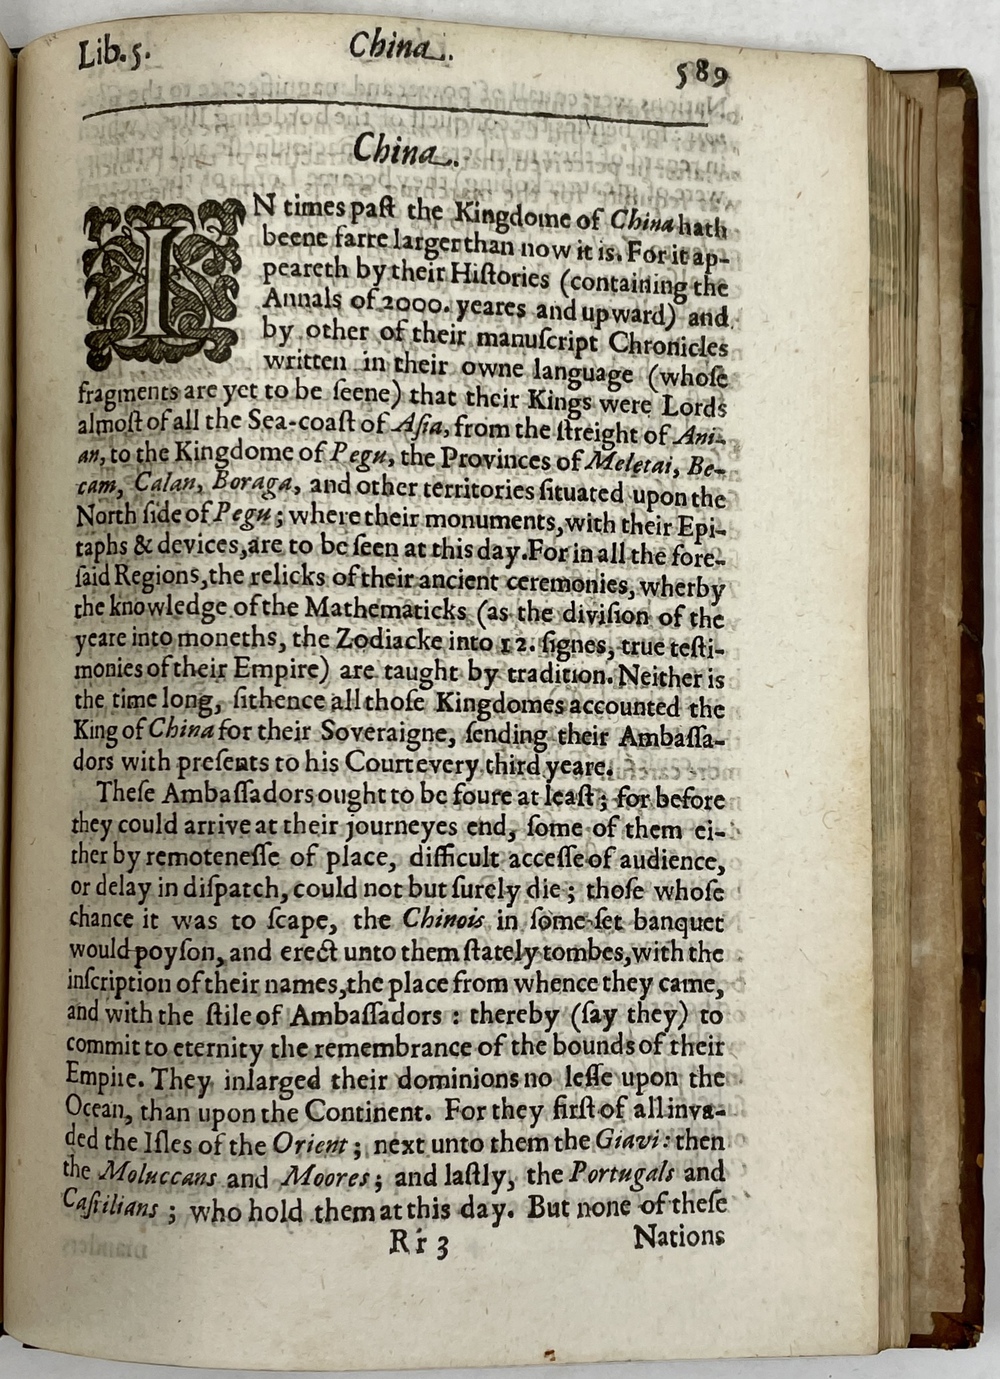 Lib. 5.
China.
589
China.
IN times past the Kingdome of China hath
beene farre larger than now it is. For it ap-
peareth by their Histories (containing the
Annals of 2000. yeares and upward) and
by other of their manuſcript Chronicles
written in their owne language (whoſe
fragments are yet to be ſeene) that their Kings were Lords
almoſt of all the Sea-coaſt of Aſia, from the ſtreight of Ani-
an, to the Kingdome of Pegu, the Provinces of Meletai, Be-
cam, Calan, Boraga, and other territories ſituated upon the
North ſide of Pegu; where their monuments, with their Epi-
taphs & devices, are to be ſeen at this day. For in all the fore-
ſaid Regions, the relicks of their ancient ceremonies, wherby
the knowledge of the Mathematicks (as the diviſion of the
yeare into moneths, the Zodiacke into 12. ſignes, true teſti-
monies of their Empire) are taught by tradition. Neither is
the time long, ſithence all thoſe Kingdomes accounted the
King of China for their Soveraigne, ſending their Ambaſſa-
dors with preſents to his Court every third yeare.
Theſe Ambaſſadors ought to be foure at leaſt; for before
they could arrive at their journeyes end, ſome of them ei-
ther by remoteneſſe of place, difficult acceſſe of audience,
or delay in diſpatch, could not but ſurely die; thoſe whoſe
chance it was to ſcape, the Chinois in ſome ſet banquet
would poyſon, and erect unto them ſtately tombes, with the
inſcription of their names, the place from whence they came,
and with the ſtile of Ambaſſadors : thereby (ſay they) to
commit to eternity the remembrance of the bounds of their
Empire. They inlarged their dominions no leſſe upon the
Ocean, than upon the Continent. For they firſt of all inva-
ded the Iſles of the Orient; next unto them the Giavi: then
the Moluccans and Moores; and laſtly, the Portugals and
Caſtilians; who hold them at this day. But none of theſe
Rr 3
Nations